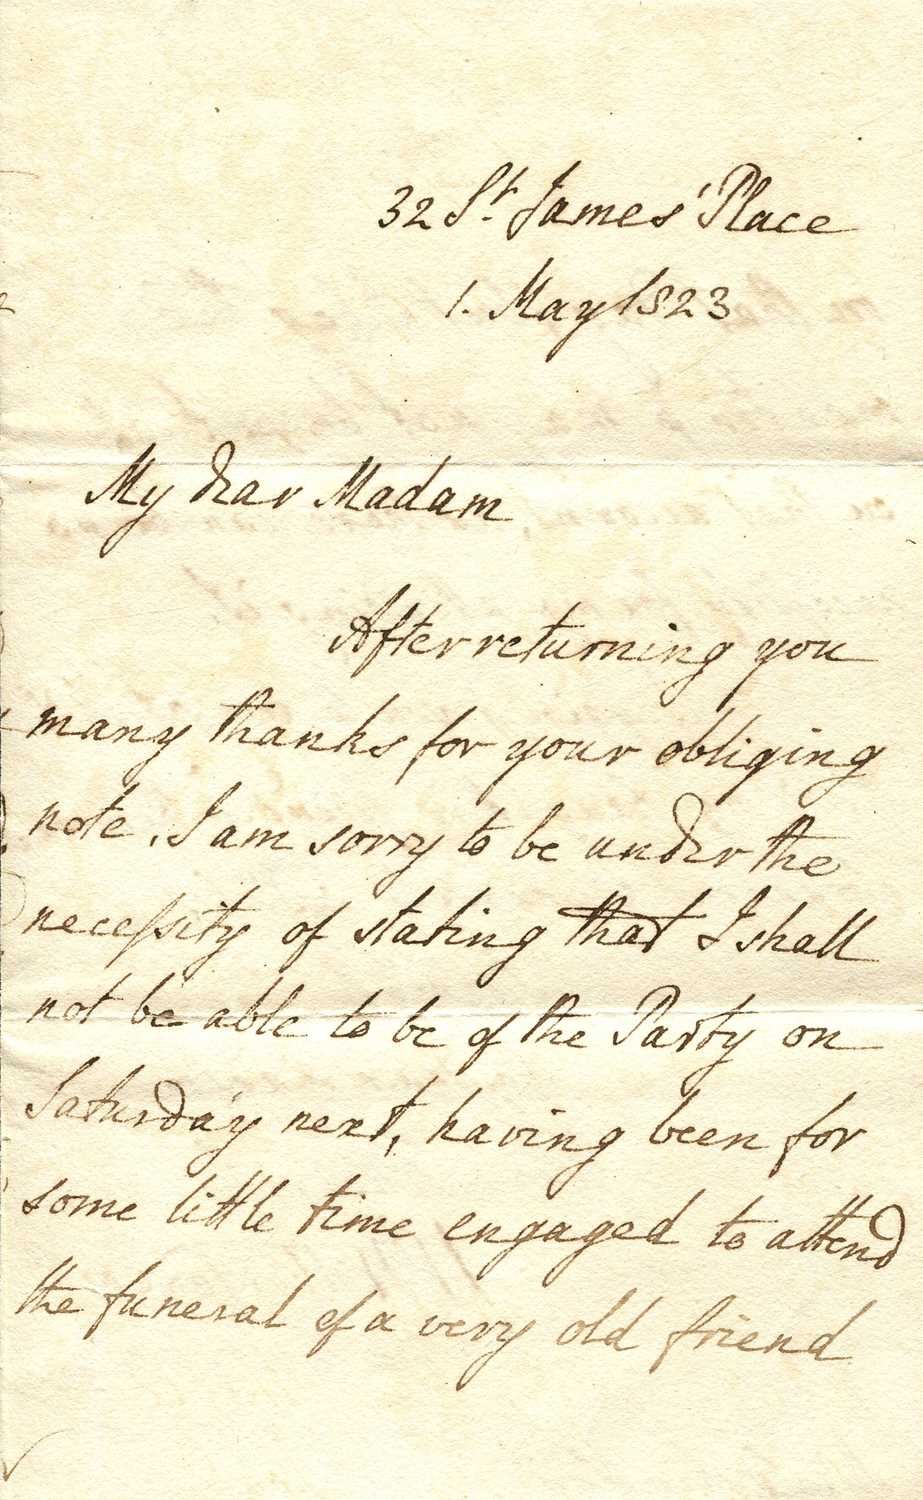 32 St. James' Place
1. May 1823
My dear Madam
After returning you
many thanks for your obliging
note, I am sorry to be under the
necessity of stating that I shall
not be able to be of the Party on
Saturday next, having been for
some little time engaged to attend
the funeral of a very old friend